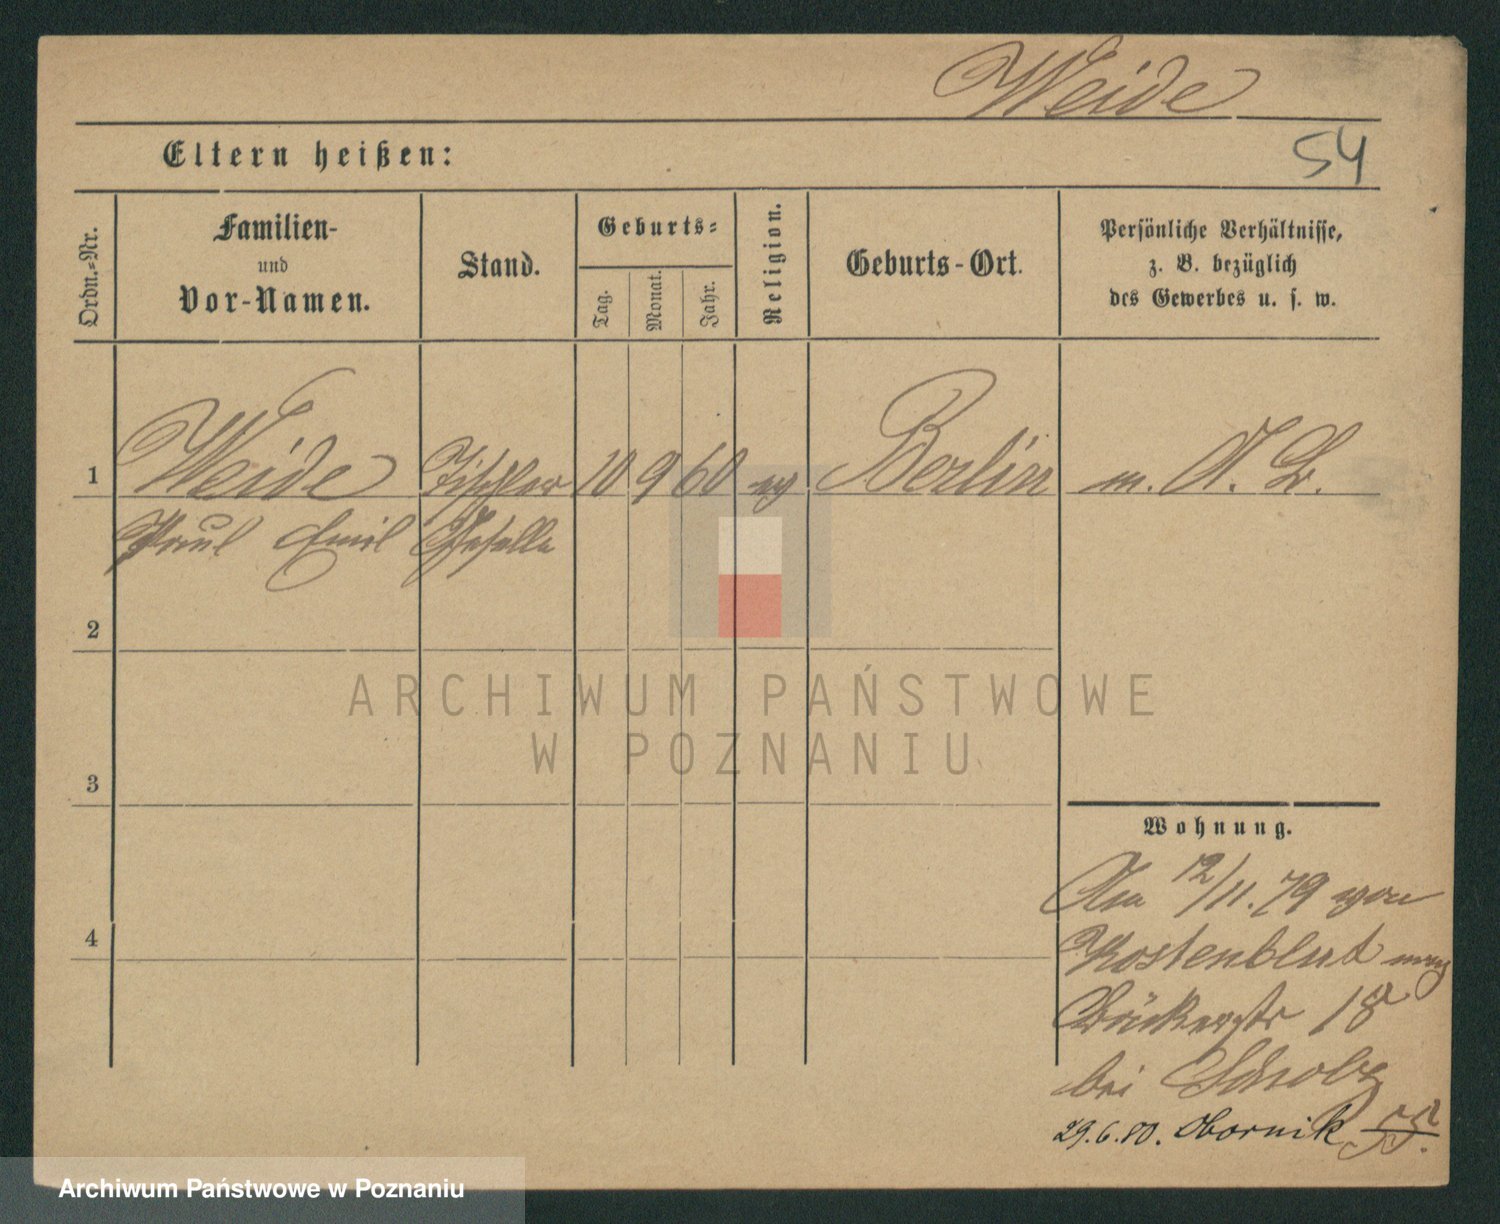 Weide
54
Eltern heißen:
Ordn.=Nr.
Familien-
und
Vor-Namen.
Stand.
Geburts=
Tag.
Monat.
Jahr.
Religion.
Geburts-Ort.
Persönliche Verhältnisse,
z. B. bezüglich
des Gewerbes u. s. w.
1 Weide Tischler 10 9 60 ev Berlin m. A. B.
Paul Emil Geselle
2
ARCHIWUM PAŃSTWOWE
W POZNANIU
3
Wohnung.
Am 12/11. 79 von
4
Kostenblut nach
Bäckerstr 18
bei
29.6.80. Obornik
Archiwum Państwowe w Poznaniu